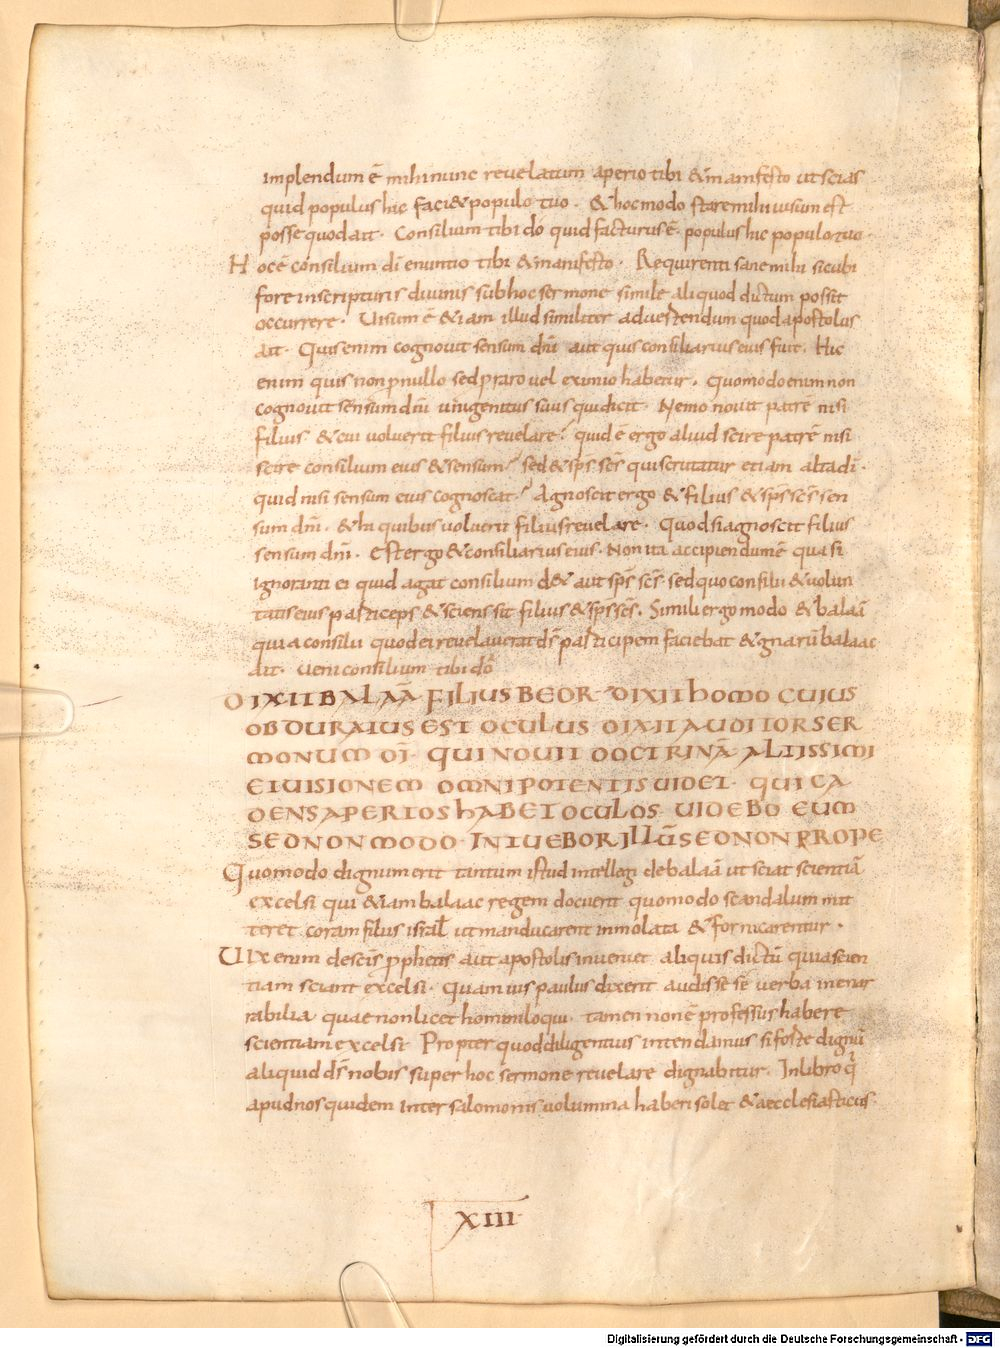 implendum ē mihi nunc revelatum aperio tibi & manifesto ut scias
quid populus hic faci& populo tuo · & hoc modo stare mihi visum est
posse quod ait · Consilium tibi do quid facturus ē · populus hic populo tuo ·
Hoc ē consilium dī enuntio tibi & manifesto · Requirenti sane mihi sicubi
fore in scripturis divinis sub hoc sermone simile aliquod dictum possit
occurrere · Uisum ē & iam illud similiter advertendum quod apostolus
ait · Quis enim cognovit sensum dnī aut quis consiliarius eius fuit · Hic
enim quis non p nullo sed p raro vel eximio habetur · Quomodo enim non
cognovit sensum dnī unigenitus suus qui dicit · Nemo novit patrē nisi
filius & cui voluerit filius revelare? quid ē ergo aliud scire patrē nisi
scire consilium eius & sensum? sed & sps scs qui scrutatur etiam alta dī ·
quid nisi sensum eius cognoscat? Agnoscit ergo & filius & sps scs sen
sum dnī · & hi quibus voluerit filius revelare · Quod si agnoscit filius
sensum dnī · Est ergo & consiliarius eius · Non ita accipiendum ē quasi
ignoranti ei quid agat consilium d& aut sps scs · sed quo consilii & volun
tatis eius particeps & sciens sit filius & sps scs · Simili ergo modo & balaā
quia consilii quod ei revelaverat ds participem faciebat & gnarū balaac
ait · Veni consilium tibi do
DIXIT BALAĀ FILIUS BEOR · DIXIT HOMO CUIUS
OBDURATUS EST OCULUS DIXIT AUDITOR SER
MONUM DĪ · QUI NOVIT DOCTRINĀ ALTISSIMI
ET VISIONEM OMNIPOTENTIS VIDET · QUI CA
DENS APERTOS HABET OCULOS · VIDEBO EUM
SED NON MODO · INTUEBOR ILLŪ SED NON PROPE
Quomodo dignum erit tantum istud intellegi de balaā ut sciat scientiā
excelsi qui & iam balaac regem docuerit quomodo scandalum mit
teret coram filiis isrl ut manducarent immolata & fornicarentur ·
Uix enim de scis pphetis aut apostolis inveniet aliquis dictū quia scien
tiam sciunt excelsi · Quamvis paulus dixerit audisse se verba inenar
rabilia quae non licet homini loqui · tamen non ē professus habere
scientiam excelsi Propter quod diligentius intendamus si forte dignū
aliquid ds nobis super hoc sermone revelare dignabitur · In libro q
apud nos quidem inter salomonis volumina haberi solet & aecclesiasticus ·
XIII
Digitalisierung gefördert durch die Deutsche Forschungsgemeinschaft - DFG